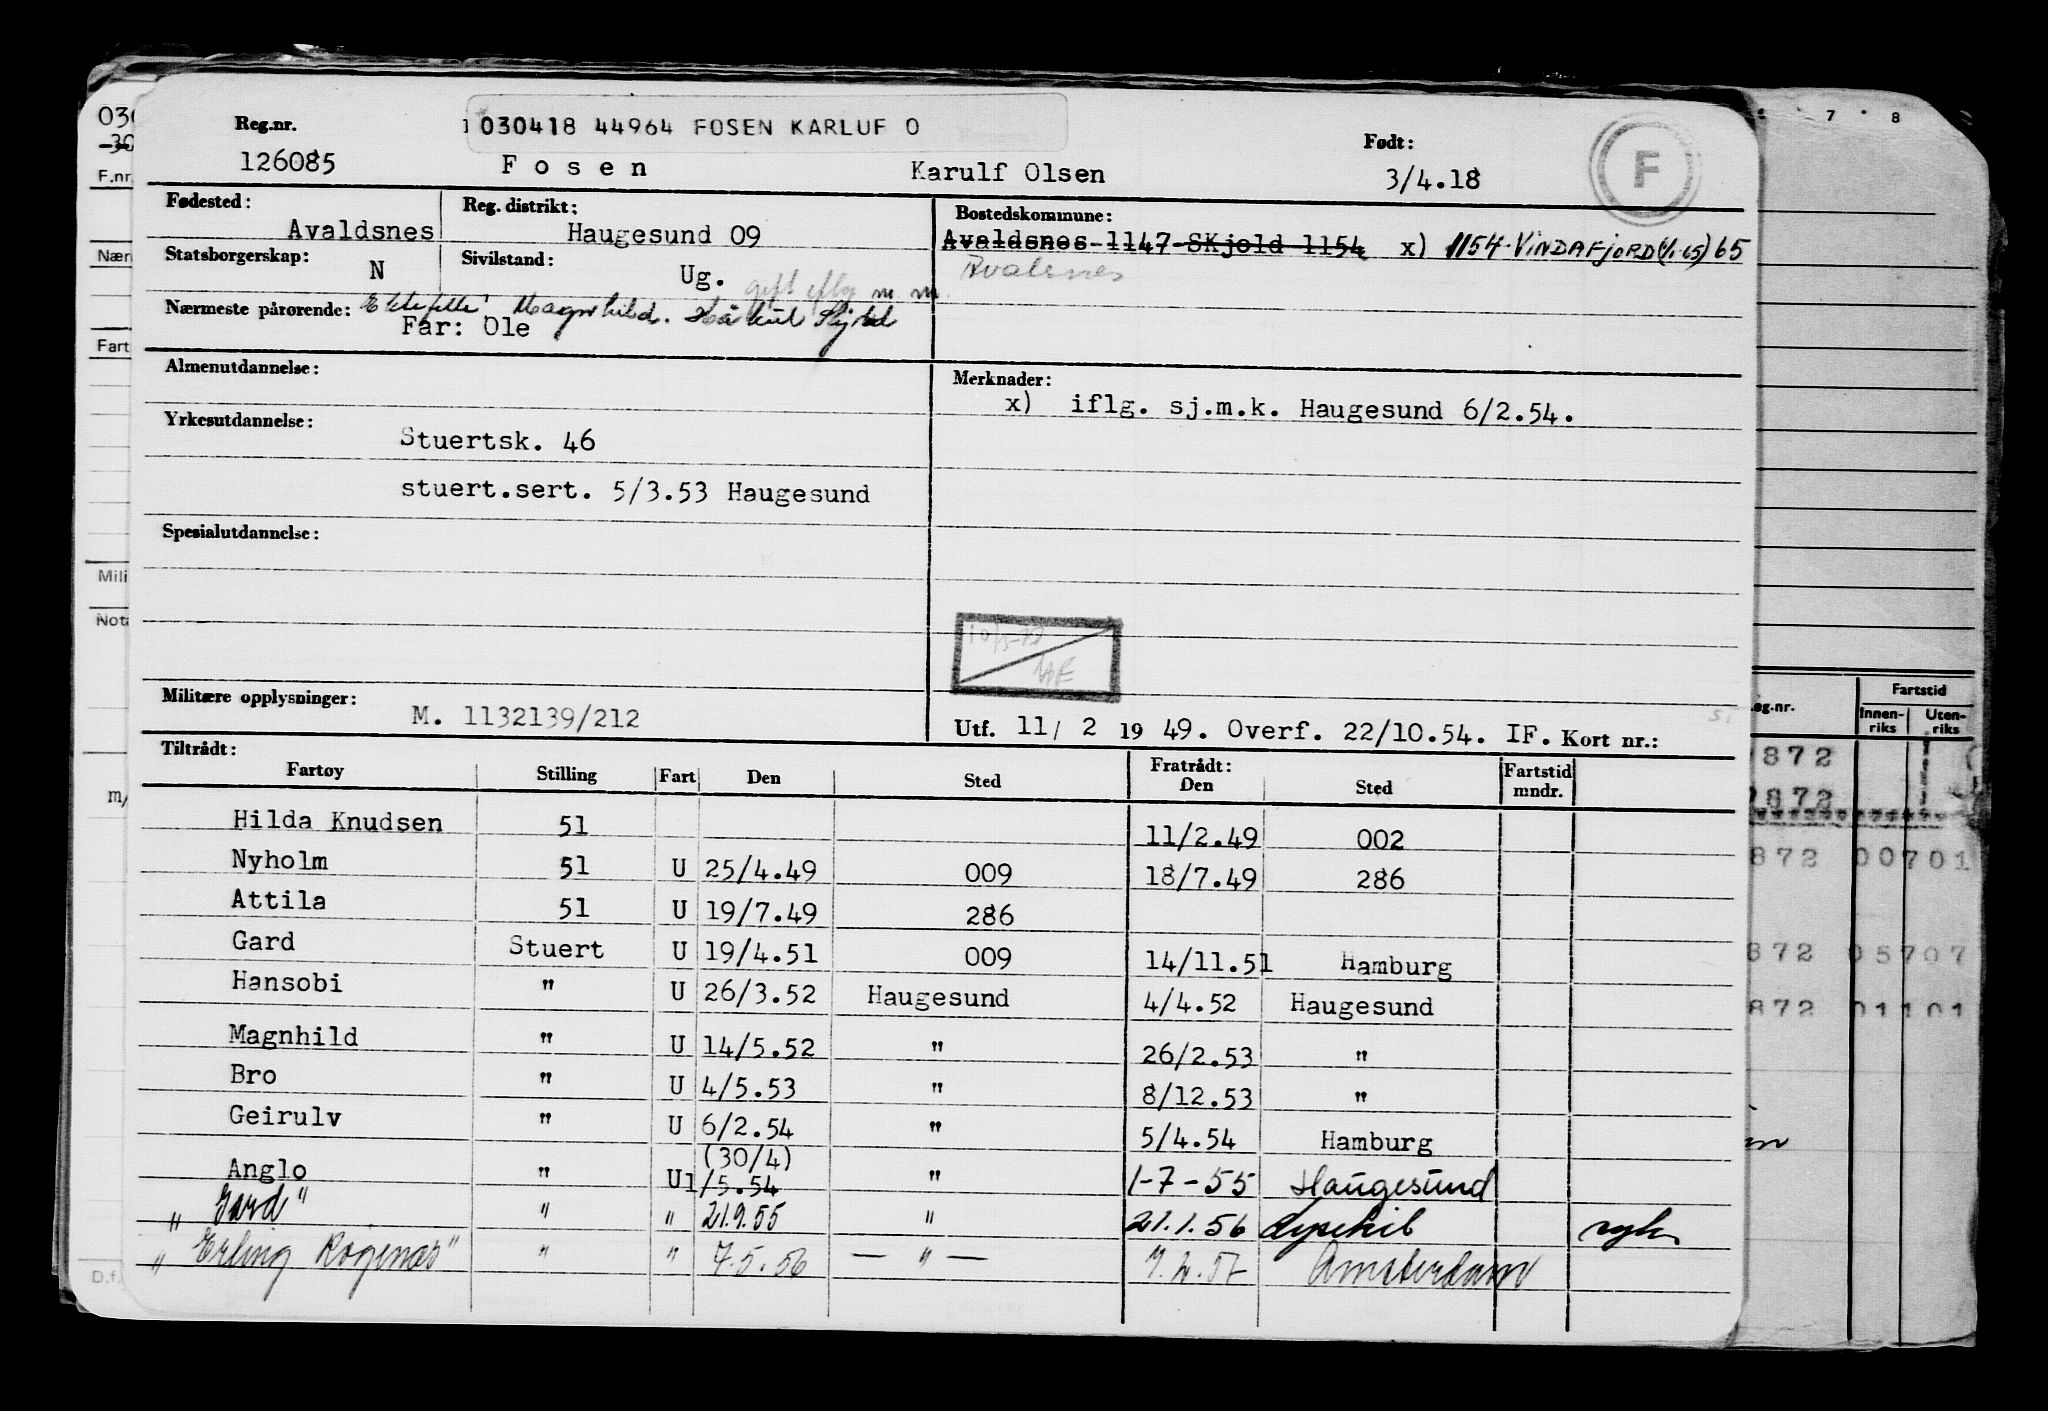 030418 44964 FOSEN KARLUF O
Reg.nr. Født: F
126085 Fosen Karulf Olsen 3/4.18
Fødested: Reg. distrikt: Bostedskommune:
Avaldsnes Haugesund 09 Avaldsnes 1147 Skjold 1154 x) 1154 VINDAFJORD (1/1-65) 65
Statsborgerskap: N Sivilstand: Ug. gift iflg m.m. Avalsnes
Nærmeste pårørende: Ektefelle: Magnhild.
Far: Ole
Almenutdannelse: Merknader:
x) iflg. sj.m.k. Haugesund 6/2.54.
Yrkesutdannelse:
Stuertsk. 46
stuert.sert. 5/3.53 Haugesund
Spesialutdannelse:
Militære opplysninger:
M. 1132139/212 Utf. 11/ 2 19 49. Overf. 22/10.54. IF. Kort nr.:
Tiltrådt: Fratrådt:
Fartøy Stilling Fart Den Sted Den Sted Fartstid mndr.
Hilda Knudsen 51 11/2.49 002
Nyholm 51 U 25/4.49 009 18/7.49 286
Attila 51 U 19/7.49 286
Gard Stuert U 19/4.51 009 14/11.51 Hamburg
Hansobi " U 26/3.52 Haugesund 4/4.52 Haugesund
Magnhild " U 14/5.52 " 26/2.53 "
Bro " U 4/5.53 " 8/12.53 "
Geirulv " U 6/2.54 " 5/4.54 Hamburg
(30/4)
Anglo " U 1/5.54 " 1-7-55 Haugesund
„Gard" " " 21.9.55 " 21.1.56 Lysekil syk
„Erling Rogenæs" " " 7.5.56 — " — 7.2.57 Amsterdam
030
30
F.nr.
Nær
Fart
Mili
Nota
m/
D.f.
7 8
eg.nr. Fartstid
Innen-riks Uten-riks
872
872
872 00701
872 05707
872 01101